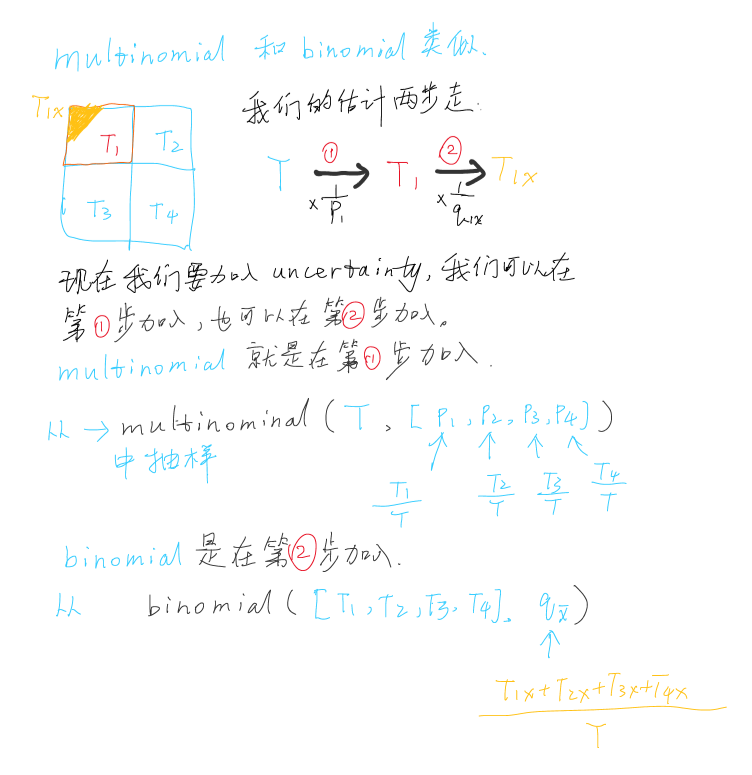 multinomial 和 binomial 类似.
我们的估计两步走:
T1x
T1 T2
T3 T4
T ① → T1 ② → T1x
× 1/P1 × 1/q1x
现在我们要加入 uncertainty, 我们可以在
第①步加入, 也可以在第②步加入。
multinomial 就是在第①步加入.
从 → multinominal ( T , [ P1 , P2 , P3 , P4 ] )
中抽样
T1/T T2/T T3/T T4/T
binomial 是在第②步加入.
从 binomial ( [ T1 , T2 , T3 , T4 ] , qx̄ )
T1x+T2x+T3x+T4x
T